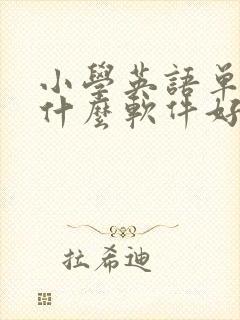 小學英語單
什麼軟件好
拉希迪